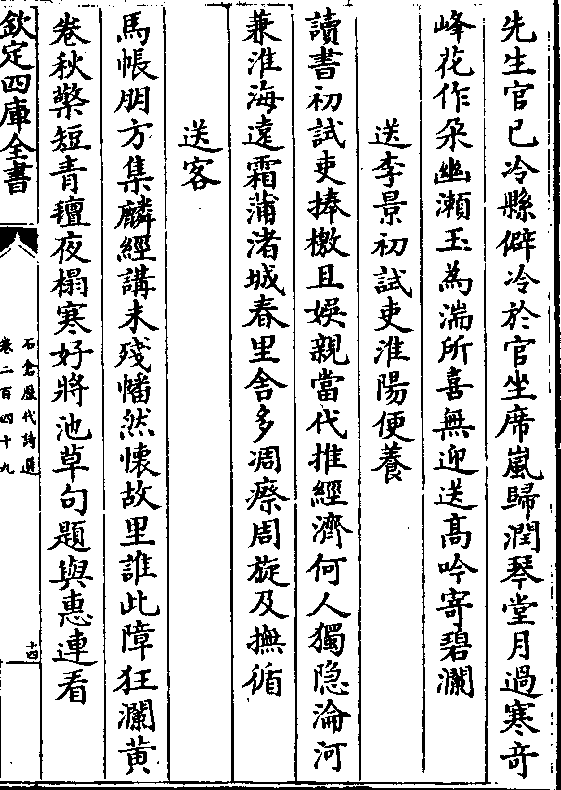 先生官已冷縣僻冷於官坐席嵐歸潤琴堂月過寒奇
峰花作朶幽瀨玉為湍所喜無迎送高吟寄碧瀾
送李景初試吏淮陽便養
讀書初試吏捧檄且娛親當代推經濟何人獨隐淪河
兼淮海遠霜蒲渚城春里舍多凋瘵周旋及撫循
送客
馬帳朋方集麟經講未殘幡然懐故里誰此障狂瀾黄
卷秋檠短青氊夜榻寒好將池草句題與惠連看
欽定四庫全書
石倉歷代詩選
卷二百四十九
十四